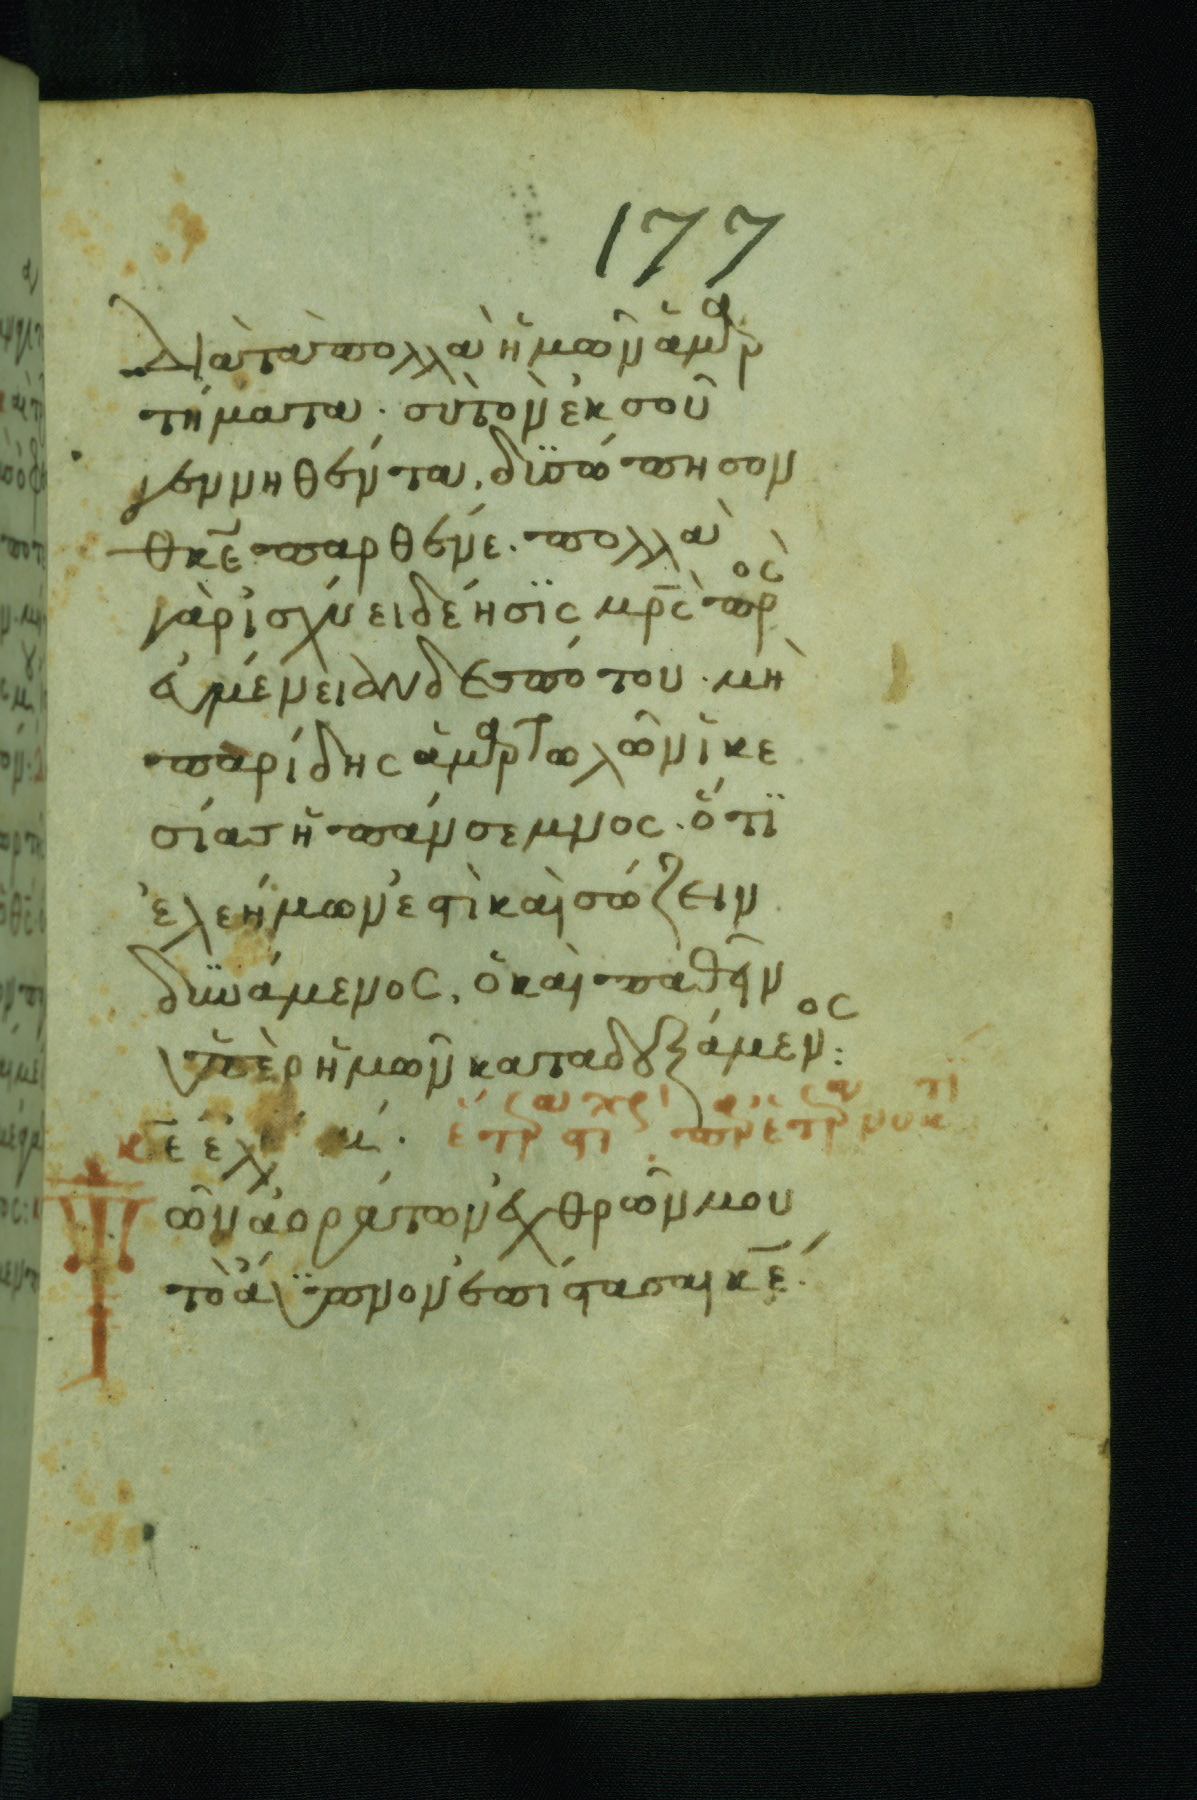 177
Διὰ τὰ πολλὰ ἡμῶν ἁμαρ
τήματα. σὺ τὸν ἐκ σοῦ
γεννηθέντα, δϊσώπησον
θκε παρθένε. πολλὰ
γὰρ ἰσχύει δέησϊς μρς πρὸς
ἐμένειαν δεσπότου. μὴ
παρίδης ἁμαρτωλῶν ἱκε
σίας ἡ πάνσεμνος. ὅτϊ
ἐλεήμων ἐστὶ καὶ σώζειν
δϋνάμενος, ὁ καὶ παθεῖν
ὑπὲρ ἡμῶν καταδεξάμενος:
κε ἐλ
Τῶν ἀοράτων ἐχθρῶν μου
τὸ ἄϋπνον ἐπίστασαι κε.